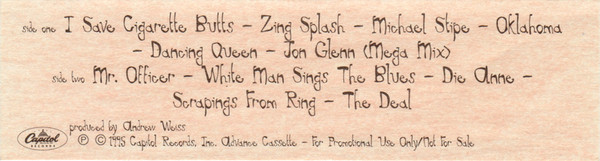 side one I Save Cigarette Butts - Zing Splash - Michael Stipe - Oklahoma
- Dancing Queen - Jon Glenn (Mega Mix)
side two Mr. Officer - White Man Sings The Blues - Die Anne -
Scrapings From Ring - The Deal
produced by Andrew Weiss
Capitol RECORDS ℗ © 1995 Capitol Records, Inc. Advance Cassette - For Promotional Use Only/Not For Sale